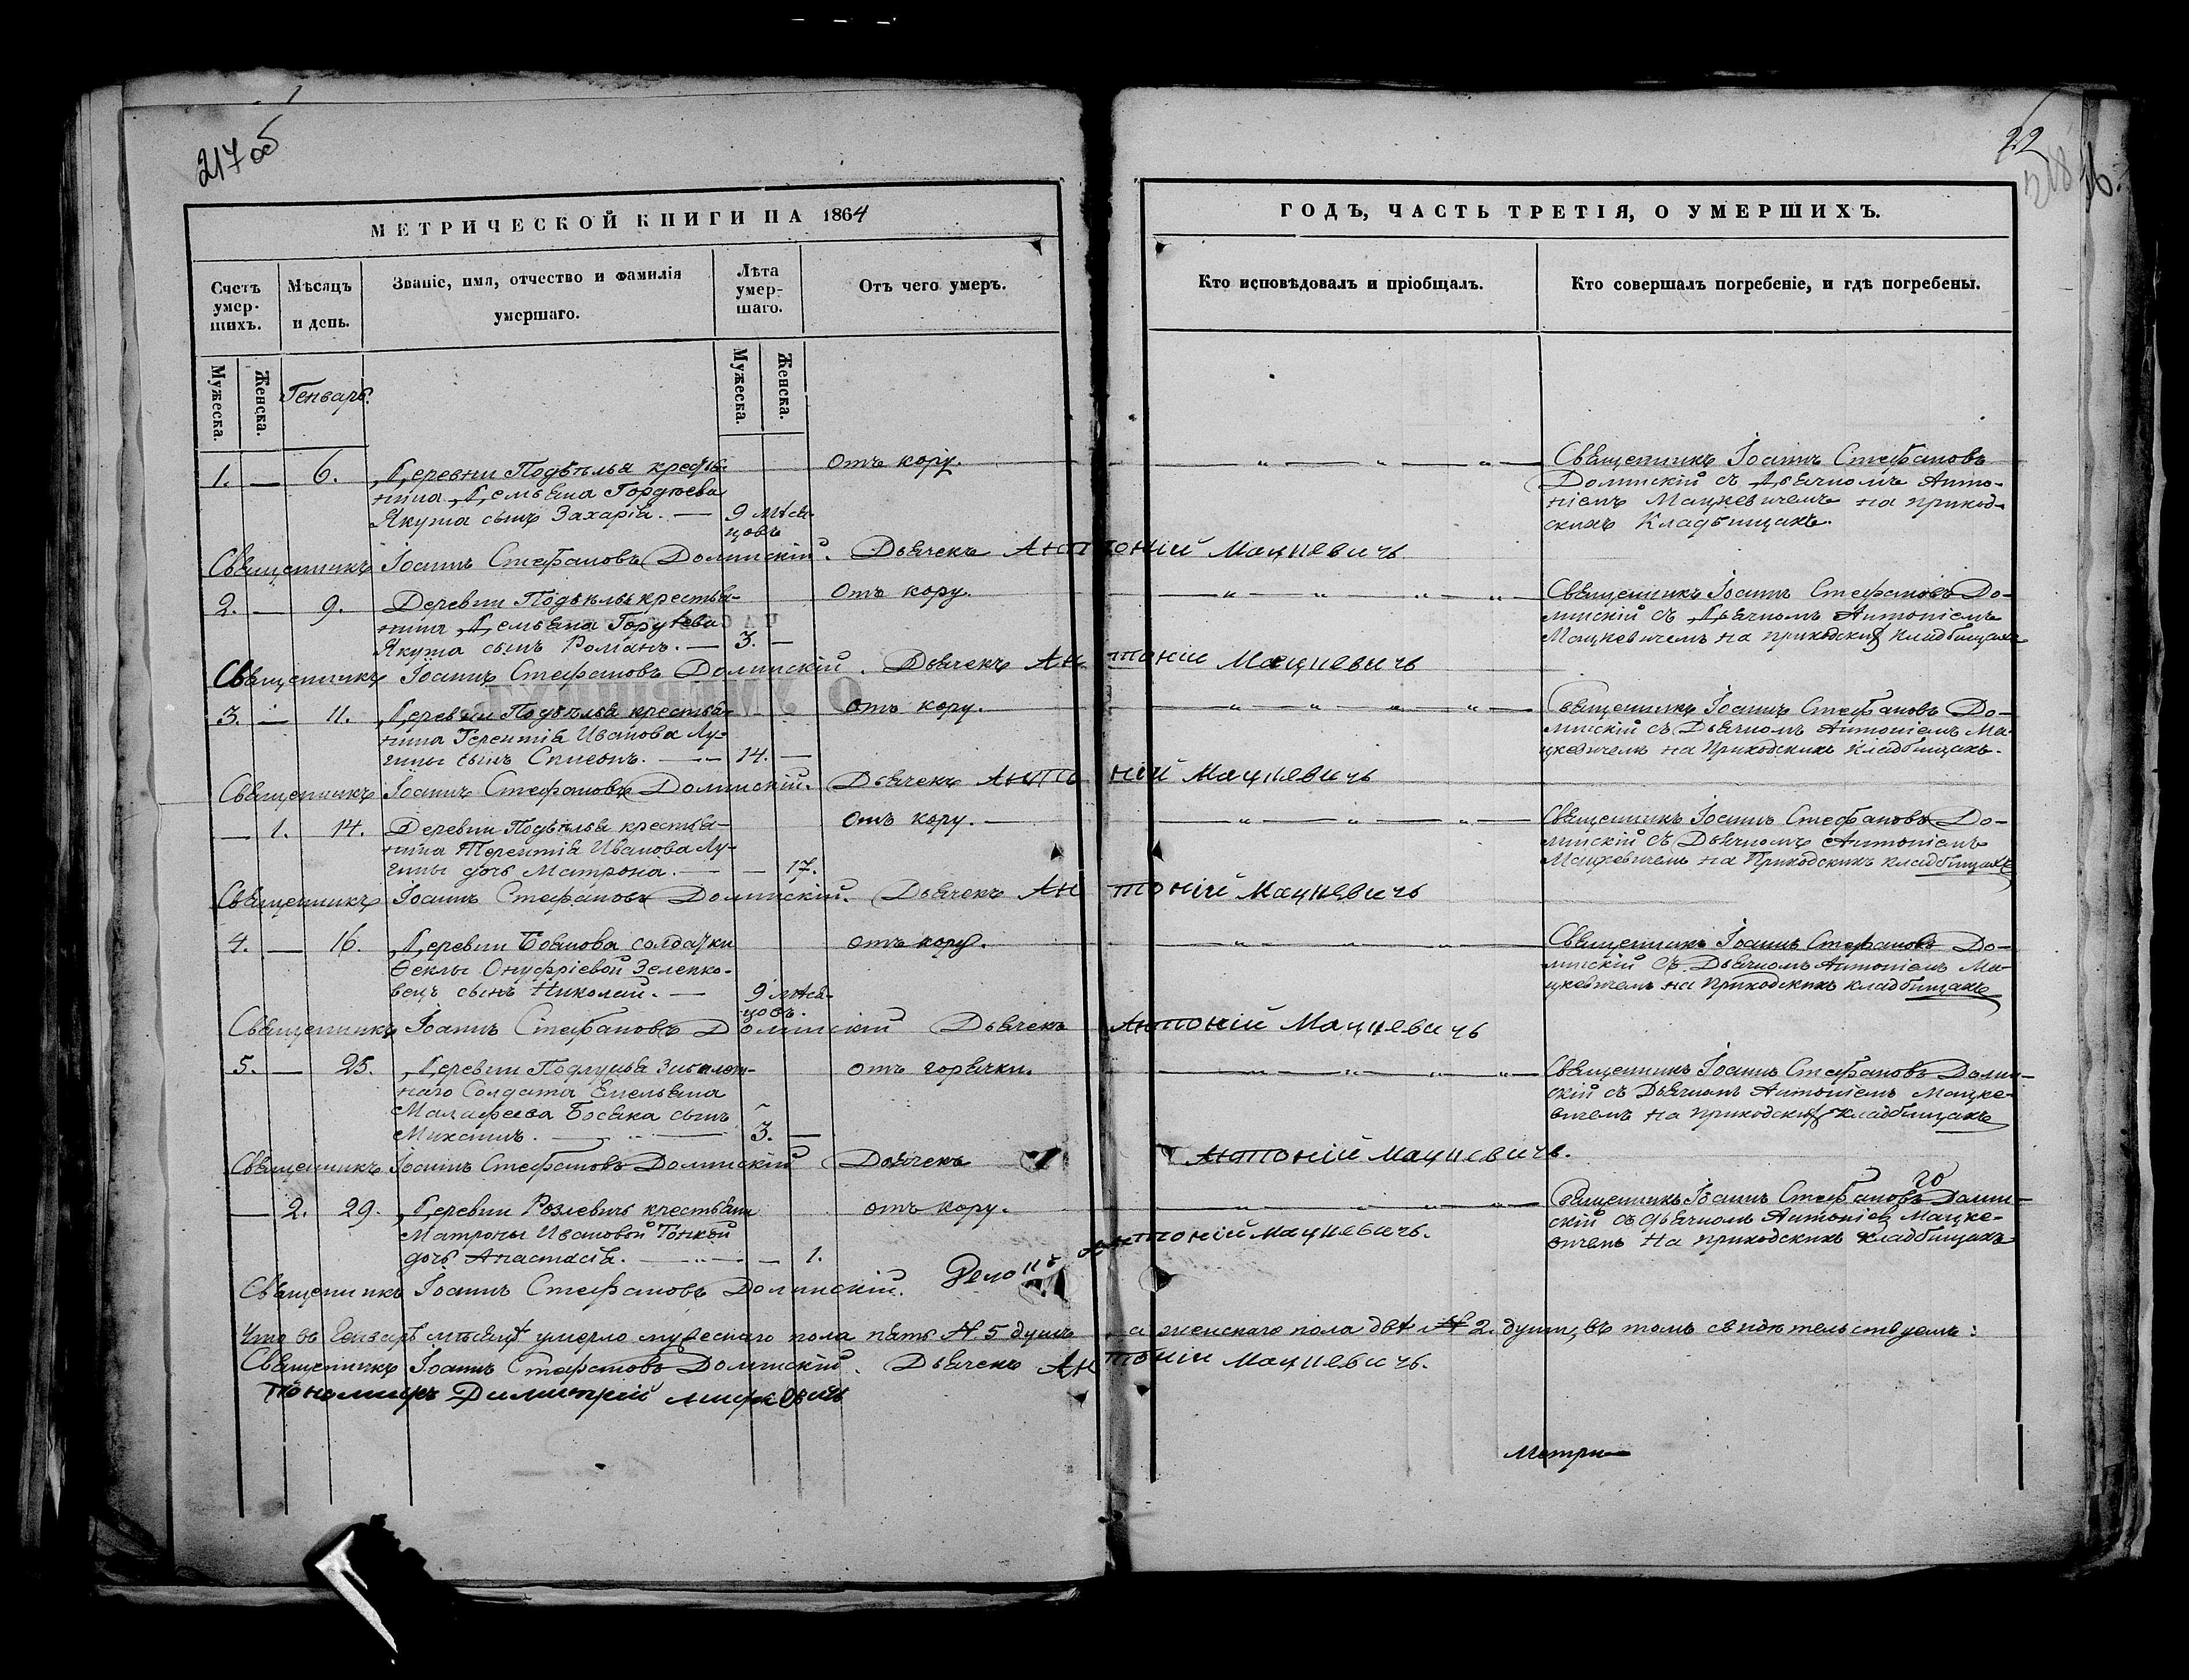 217 об
22
МЕТРИЧЕСКОЙ КНИГИ НА 1864
ГОДЪ, ЧАСТЬ ТРЕТІЯ, О УМЕРШИХЪ.
Счетъ умер-шихъ.
Мѣсяцъ и день.
Званіе, имя, отчество и фамилія умершаго.
Лѣта умер-шаго.
Отъ чего умеръ.
Кто исповѣдовалъ и пріобщалъ.
Кто совершалъ погребеніе, и гдѣ погребены.
Мужеска.
Женска.
Генварь.
Мужеска.
Женска.
1. — 6. Деревни Подѣлья крестья-
нина Демьяна Гордѣева
Якута сынъ Захарія. — 9 мѣся-
цовъ
Отъ кору.
Священникъ Іоаннъ Стефановъ
Долинскій съ Дьячкомъ Анто-
ніемъ Мацкевичемъ на приход-
скихъ Кладбищахъ.
Священникъ Іоаннъ Стефановъ Долинскій. Дьячекъ Антоній Мацкевичъ
2. — 9. Деревни Подѣлья крестья-
нина Демьяна Гордѣева
Якута сынъ Романъ. — 3. —
Отъ кору.
Священникъ Іоаннъ Стефановъ До-
линскій съ Дьячкомъ Антоніемъ
Мацкевичемъ на приходских кладбищахъ
Священникъ Іоаннъ Стефановъ Долинскій. Дьячекъ Антоній Мацкевичъ
3. — 11. Деревни Подѣлья крестья-
нина Терентія Иванова Лу-
гины сынъ Симеонъ. — 14. —
Отъ кору.
Священникъ Іоаннъ Стефановъ До-
линскій съ Дьячкомъ Антоніемъ Ма-
цкевичемъ на Приходскихъ Кладбищахъ.
Священникъ Іоаннъ Стефановъ Долинскій. Дьячекъ Антоній Мацкевичъ
— 1. 14. Деревни Подѣлья крестья-
нина Терентія Иванова Лу-
гины дочь Матрона. — — 17.
Отъ кору.
Священникъ Іоаннъ Стефановъ До-
линскій съ Дьячкомъ Антоніемъ
Мацкевичемъ на Приходскихъ кладбищахъ
Священникъ Іоаннъ Стефановъ Долинскій. Дьячекъ Антоній Мацкевичъ
4. — 16. Деревни солдатки
Феклы Онуфріевой Зеленко-
вецъ сынъ Николай. — 9 мѣся-
цовъ.
отъ кору.
Священникъ Іоаннъ Стефановъ До-
линскій съ Дьячкомъ Антоніемъ Ма-
цкевичемъ на Приходскихъ кладбищахъ
Священникъ Іоаннъ Стефановъ Долинскій Дьячекъ Антоній Мацкевичъ
5. — 25. Деревни
наго Солдата Емельяна
Малафеева Босяка сынъ
Михаилъ. — 3. —
отъ горячки.
Священникъ Іоаннъ Стефановъ Долин-
скій съ Дьячкомъ Антоніемъ Мацке-
вичемъ на приходских кладбищахъ
Священникъ Іоаннъ Стефановъ Долинскій Дьячекъ Антоній Мацкевичъ.
— 2. 29. Деревни Розлевичъ крестьян
Матроны Ивановой Тонкой
дочь Анастасія. — — 1.
отъ кору.
Священникъ Іоаннъ Стефановъ Долин-
скій съ дьячкомъ Антоніем Мацке-
вичемъ на приходскихъ кладбищахъ
Священникъ Іоаннъ Стефановъ Долинскій. Антоній Мацкевичъ.
Что въ Генварѣ мѣсяцѣ умерло мужескаго пола пять № 5 душъ, а женскаго пола двѣ № 2. души, въ томъ свидѣтельствуемъ:
Священникъ Іоаннъ Стефановъ Долинскій. Дьячекъ Антоній Мацкевичъ.
Пономарь Димитрій
Метри—